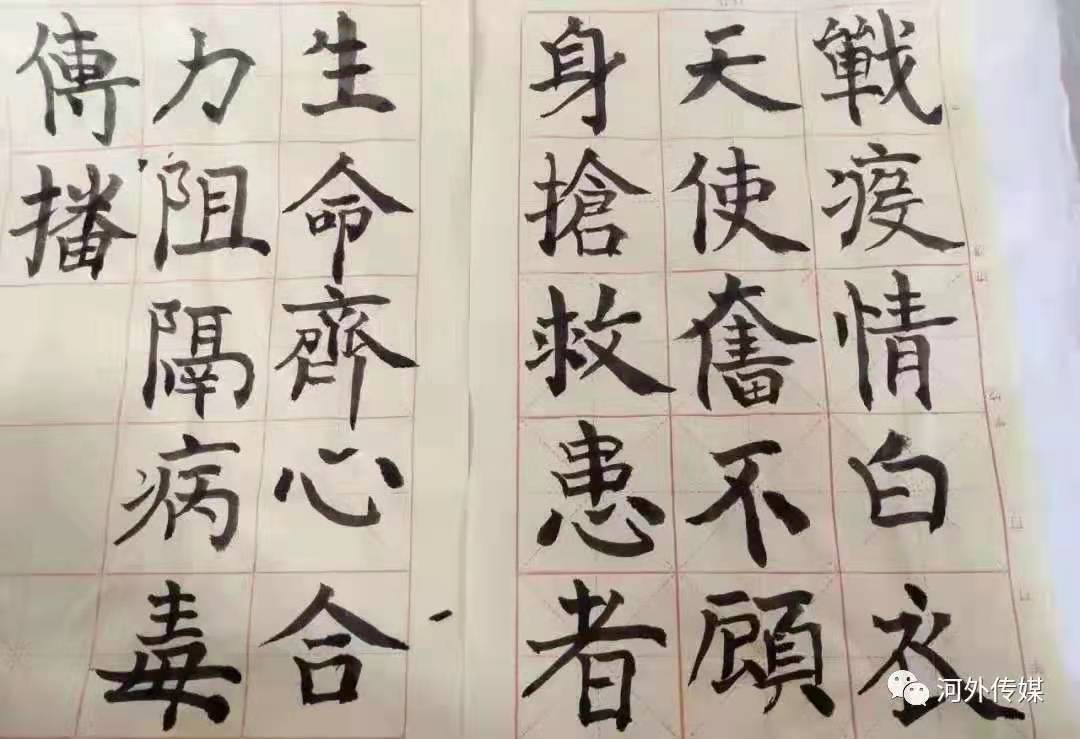 戰疫情白衣
天使奮不顧
身搶救患者
生命齊心合
力阻隔病毒
傳播
河外传媒